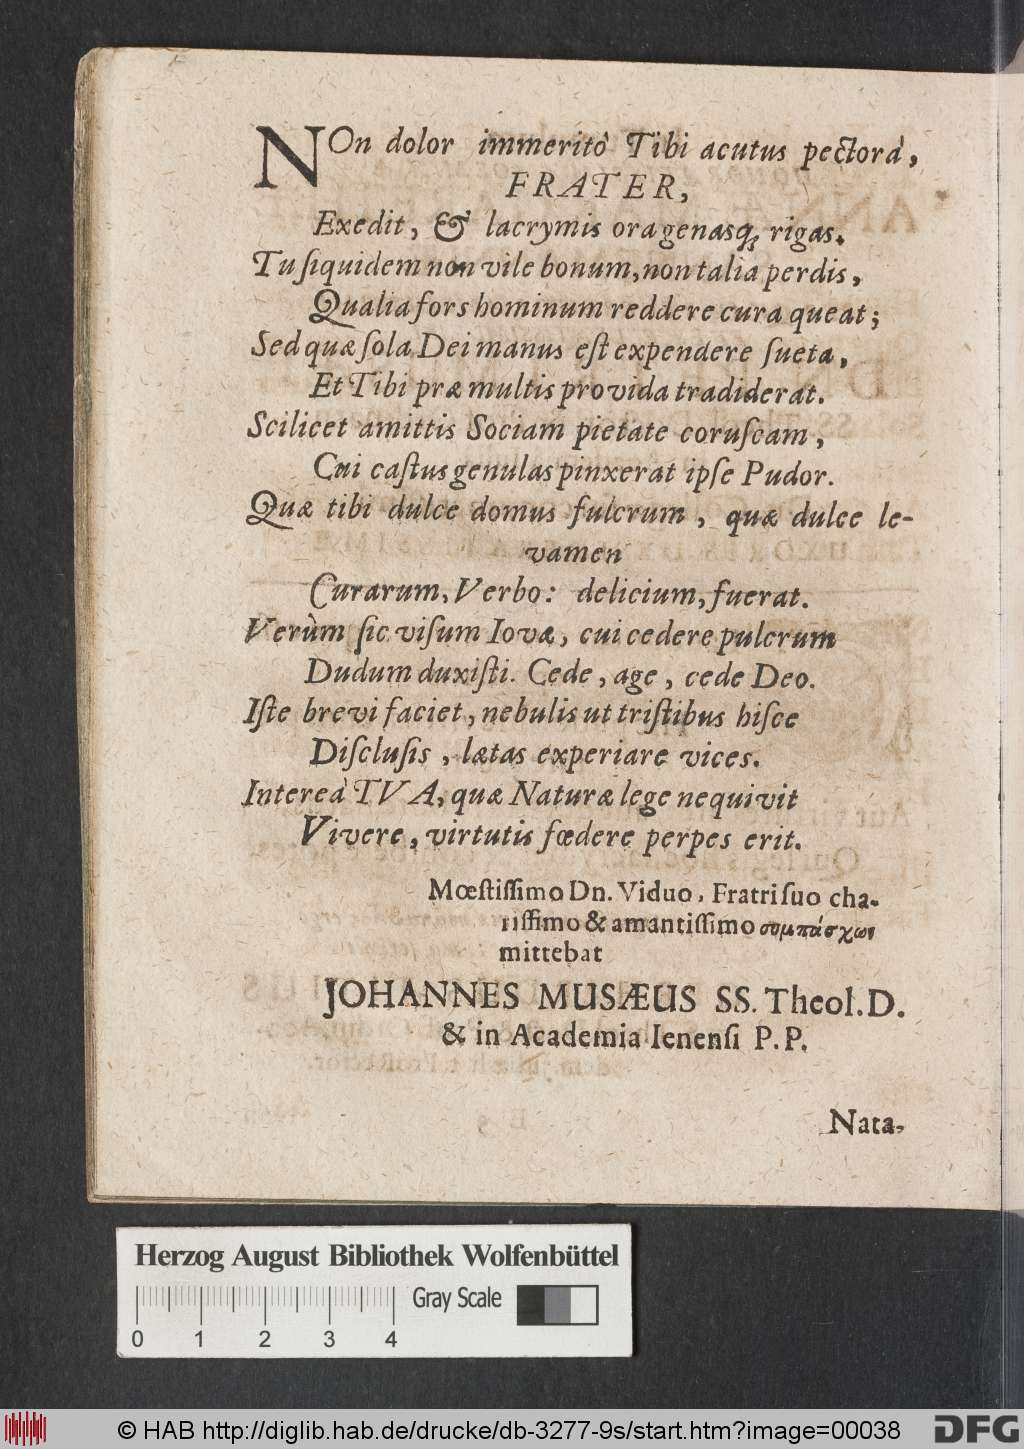 NOn dolor immeritò Tibi acutus pectorà,
FRATER,
Exedit, & lacrymis ora genasq́; rigas.
Tu ſiquidem non vile bonum, non talia perdis,
Qualia fors hominum reddere cura queat;
Sed quæ ſola Dei manus eſt expendere ſueta,
Et Tibi præ multis provida tradiderat.
Scilicet amittis Sociam pietate coruſcam,
Cui caſtus genulas pinxerat ipſe Pudor.
Quæ tibi dulce domus fulcrum, quæ dulce le-
vamen
Curarum, Verbo: delicium, fuerat.
Verùm ſic viſum Iovæ, cui cedere pulcrum
Dudum duxiſti. Cede, age, cede Deo.
Iſte brevi faciet, nebulis ut triſtibus hiſce
Diſcluſis, lætas experiare vices.
Intereà TVA, quæ Naturæ lege nequivit
Vivere, virtutis fœdere perpes erit.
Mœſtiſſimo Dn. Viduo, Fratri ſuo cha-
riſſimo & amantiſſimo συμπάσχων
mittebat
JOHANNES MUSÆUS SS. Theol. D.
& in Academia Ienenſi P. P.
Nata-
Herzog August Bibliothek Wolfenbüttel
Gray Scale
0 1 2 3 4
© HAB http://diglib.hab.de/drucke/db-3277-9s/start.htm?image=00038
DFG